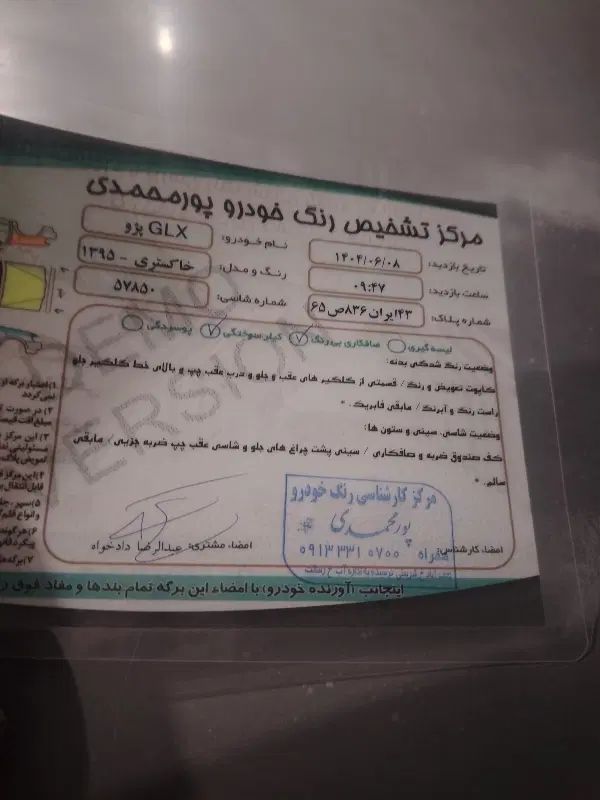 مرکز تشخیص رنگ خودرو پورمحمدی
تاریخ بازدید: ۱۴۰۴/۰۶/۰۸
نام خودرو: GLX پژو
ساعت بازدید: ۰۹:۴۷
رنگ و مدل: خاکستری - ۱۳۹۵
شماره پلاک: ۴۳ایران۸۳۶ص۶۵
شماره شاسی: ۵۷۸۵۰
لیسه گیری صافکاری بی‌رنگ کیلر سوختگی پوسیدگی
وضعیت رنگ شدگی بدنه:
کاپوت تعویض و رنگ / قسمتی از گلگیر های عقب و جلو و درب عقب چپ و بالای خط گلگیر جلو
راست رنگ و آبرنگ / مابقی فابریک. *
وضعیت شاسی، سینی و ستون ها:
کف صندوق ضربه و صافکاری / سینی پشت چراغ های جلو و شاسی عقب چپ ضربه جزیی / مابقی
سالم. *
مرکز کارشناسی رنگ خودرو
پورمحمدی
همراه ۰۹۱۳۳۳۱۰۷۰۰
امضاء کارشناس:
امضاء مشتری: عبدالرضا دادخواه
اینجانب (آورنده خودرو) با امضاء این برگه تمام بندها و مفاد فوق
DEMO
VERSION